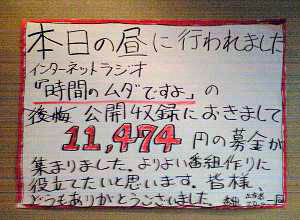 本日の昼に行われました
インターネットラジオ
「時間のムダですよ」の
後悔 公開収録におきまして
11,474 円の募金が
集まりました。よりよい番組作りに
役立てたいと思います。皆様
どうもありがとうございました。